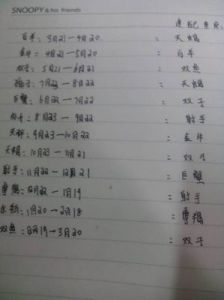 SNOOPY & his friends
白羊：3月21—4月20 ： 天蝎
金牛：4月21—5月20 ： 白羊
双子：5月21—6月21 ： 双鱼
狮子：7月22—8月22 ： 天蝎
巨蟹：6月22—7月22 ： 双子
8月23—9月22 ： 射手
天秤：9月23—10月22 ： 金牛
天蝎：10月23—11月21 ： 双子
射手：11月22—12月21 ： 巨蟹
12月22—1月19 ： 射手
水瓶：1月20—2月18 ： 摩羯
双鱼：2月19—3月20 ： 双子